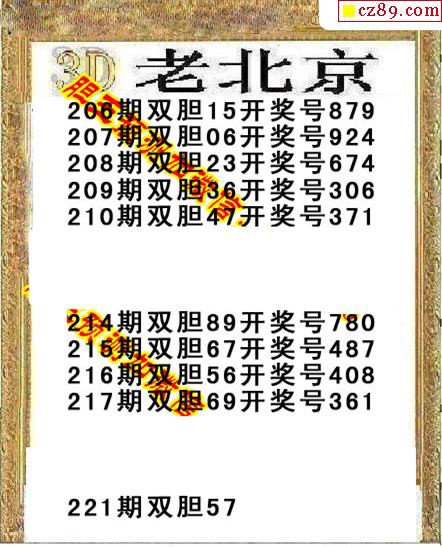 cz89.com
3D 老北京
206期双胆15开奖号879
207期双胆06开奖号924
208期双胆23开奖号674
209期双胆36开奖号306
210期双胆47开奖号371
214期双胆89开奖号780
215期双胆67开奖号487
216期双胆56开奖号408
217期双胆69开奖号361
221期双胆57